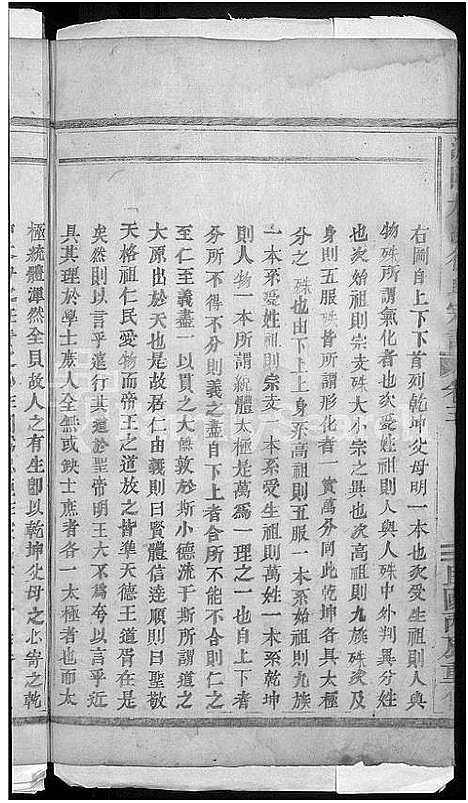 右圖自上下下首列乾坤父母明一本也次受生祖則人與
物殊所謂氣化者也次受姓祖則人與人殊中外判異分姓
也次始祖則宗支殊大小宗之異也次高祖則九族殊次及
身則五服殊皆所謂形化者一實萬分同此乾坤各具太極
分之殊也由下上上身系高祖則五服一本系始祖則九族
一本系受姓祖則宗支一本系受生祖則萬姓一本系乾坤
則人物一本所謂統體太極是萬爲一理之一也自上下者
分所不得不分則義之盡自下上者合所不能不合則仁之
至仁至義盡一以貫之大德敦於斯小德流于斯所謂道之
大原出於天也是故居仁由義則曰賢體信達順則曰聖敬
天格祖仁民愛物而帝王之道放之皆準天德王道胥在是
矣然則以言乎遠行其道於聖帝明王六不爲夸以言乎近
具其理於學士庶人全無或缺士庶者各一太極者也而太
極統體渾然全具故人之有生卽以乾坤父母之心寄之乾